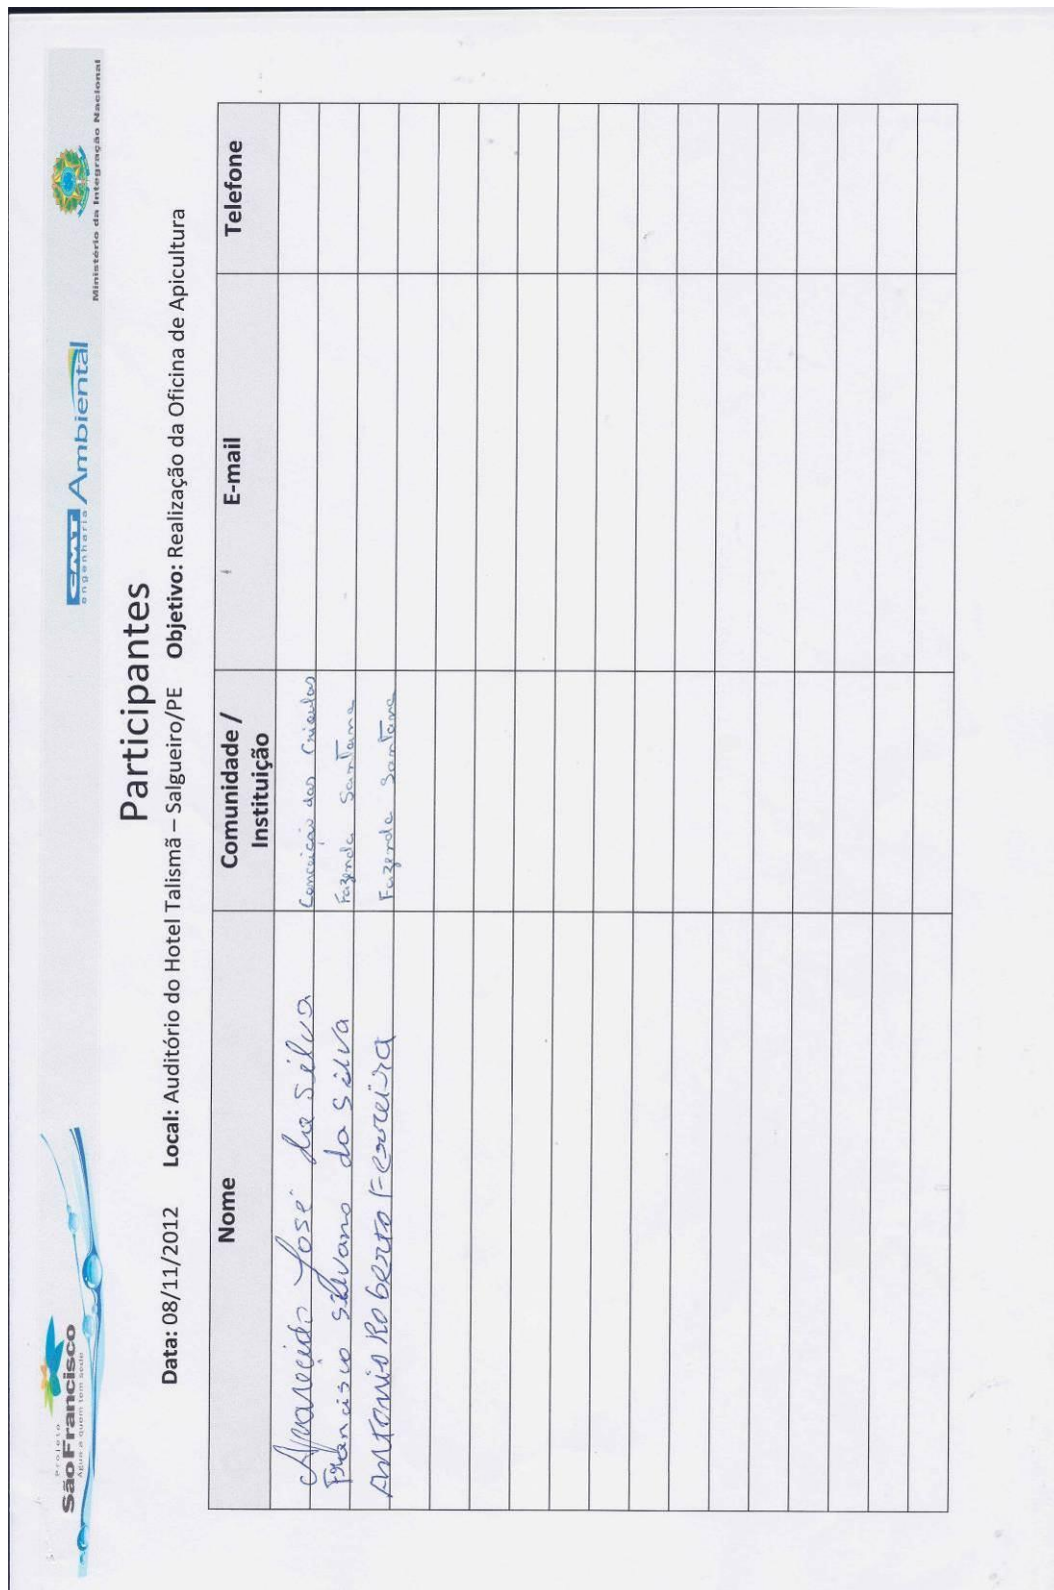 Projeto
São Francisco
Água a quem tem sede
CMT
engenharia Ambiental
Ministério da Integração Nacional
Participantes
Data: 08/11/2012 Local: Auditório do Hotel Talismã – Salgueiro/PE Objetivo: Realização da Oficina de Apicultura
Nome Comunidade / Instituição E-mail Telefone
Aparecido José da Silva Conceição das Crioulas
Francisco Silvano da Silva Fazenda Santana
Antonio Roberto Ferreira Fazenda Santana